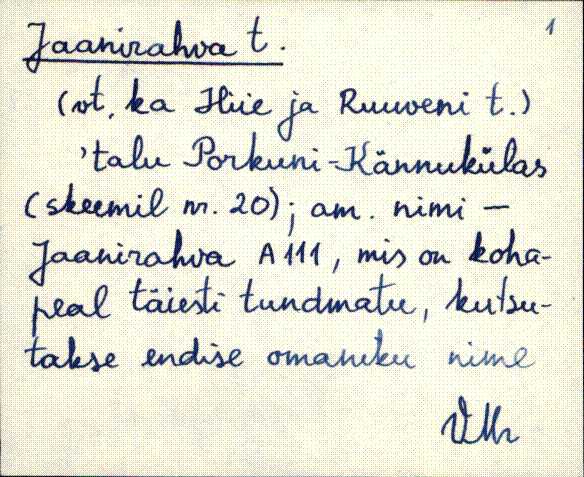 1
Jaanirahva t.
(vt. ka Hiie ja Ruuveni t.)
'talu Porkuni-Kännukülas
(skeemil nr. 20); am. nimi –
Jaanirahva A 111, mis on koha-
peal täiesti tundmatu, kutsu-
takse endise omaniku nime